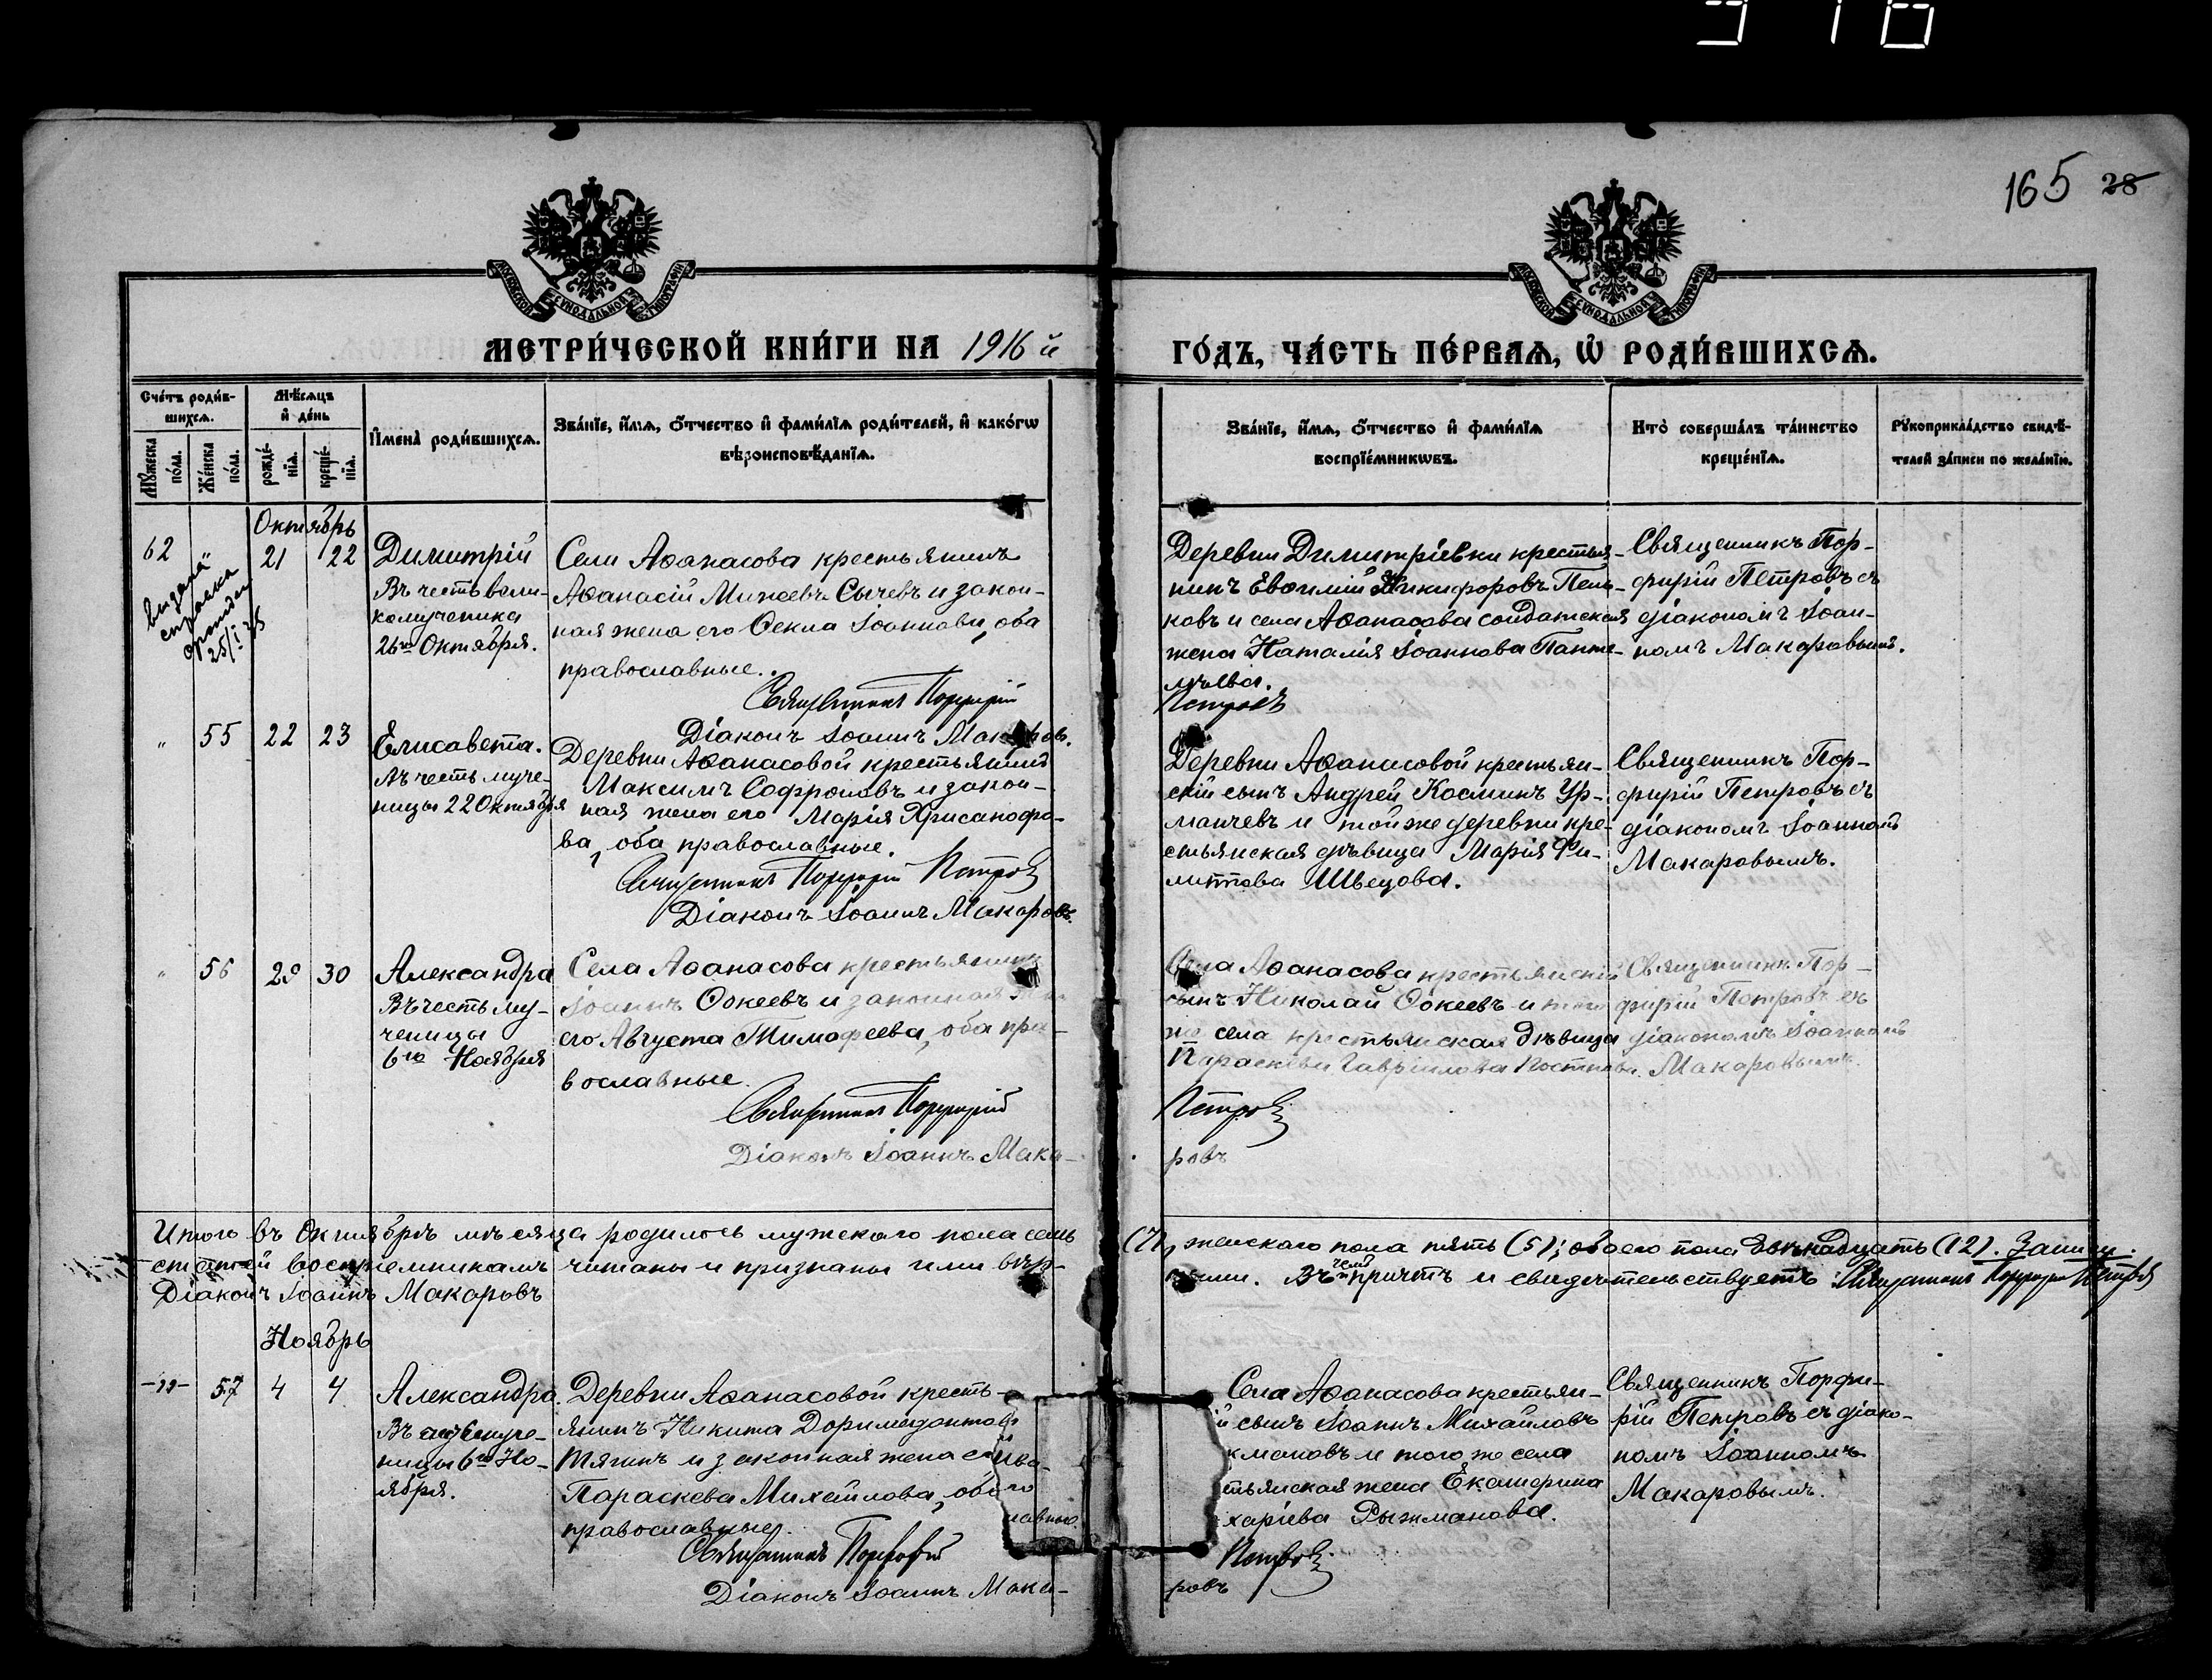 165 28
МЕТРИ́ЧЕСКОЙ КНИ́ГИ НА 1916 й
ГО́ДЪ, ЧА́СТЬ ПЕ́РВАѦ, Ѡ҆ РОДИ́ВШИХСѦ.
МОСКОВСКОЙ СѴНОДАЛЬНОЙ ТИПОГРАФІИ
МОСКОВСКОЙ СѴНОДАЛЬНОЙ ТИПОГРАФІИ
Сче́тъ роди́в-
шихсѧ.
Мꙋ́жеска по́ла.
Же́нска по́ла.
Мѣ́сѧцъ
и҆ де́нь
рожде́-
нїѧ.
креще́-
нїѧ.
И҆мена̀ роди́вшихсѧ.
Зва́нїе, и҆́мѧ, ѻ҆́тчество и҆ фами́лїѧ роди́телей, и҆ како́гѡ
вѣроисповѣ́данїѧ.
Зва́нїе, и҆́мѧ, ѻ҆́тчество и҆ фами́лїѧ
воспрїе́мникѡвъ.
Кто̀ соверша́лъ та́инство
креще́нїѧ.
Рꙋкоприкла́дство свидѣ́-
телей за́писи по жела́нїю.
Октябрь
62
21 22
выдана
справка
25/I 35
Димитрій
Въ честь вели-
комученика
26го Октября.
Села Аѳанасова крестьянинъ
Аѳанасій Михеевъ Сычевъ и закон-
ная жена его Ѳекла Іоаннова, оба
православные.
Священникъ Порфирій
Діаконъ Іоаннъ Макаровъ.
Деревни Димитріевки крестья-
нинъ Евѳимій Никифоровъ Пень-
ковъ и села Аѳанасова солдатская
жена Наталія Іоаннова Панте-
лѣева.
Петровъ
Священникъ Пор-
фирій Петровъ съ
діакономъ Іоан-
номъ Макаровымъ.
" 55 22 23
Елисавета.
Въ честь муче-
ницы 22 Октября
Деревни Аѳанасовой крестьянинъ
Максимъ Софроновъ и закон-
ная жена его Марія Хрисанфо-
ва, оба православные.
Священникъ Порфирій Петровъ
Діаконъ Іоаннъ Макаровъ.
Деревни Аѳанасовой крестьян-
скій сынъ Андрей Косминъ Ур-
манчевъ и той же деревни кре-
стьянская дѣвица Марія Фи-
липпова Швецова.
Священникъ Пор-
фирій Петровъ съ
діакономъ Іоанномъ
Макаровымъ.
" 56 29 30
Александра
Въ честь му-
ченицы
6го Ноября
Села Аѳанасова крестьянинъ
Іоаннъ Ѳокеевъ и законная
его Августа Тимофеева, оба пра-
вославные.
Священникъ Порфирій
Діаконъ Іоаннъ Мака-
Села Аѳанасова крестьянскій
сынъ Николай Ѳокеевъ и того
же села крестьянская дѣвица
Параскева Гавріилова Постнова.
Петровъ
ровъ
Священникъ Пор-
фирій Петровъ съ
діакономъ Іоанномъ
Макаровымъ.
Итого въ Октябрѣ мѣсяца родилось мужскаго пола семь (7), женскаго пола пять (5); обоего пола двѣнадцать (12). Запись
статей воспріемникамъ читаны и признаны ими вѣр- ными. Въ чемъ причтъ и свидетельствуетъ: Священникъ Порфирій Петровъ
Діаконъ Іоаннъ Макаровъ
Ноябрь
-"- 57 4 4
Александра.
Въ честь муче-
ницы 6го Но-
ября.
Деревни Аѳанасовой кресть-
янинъ Никита Доримедонтовъ
Тягинъ и законная жена его
Параскева Михайлова, оба
православные.
Священникъ Порфирій
Діаконъ Іоаннъ Мака-
Села Аѳанасова крестьян-
й сынъ Іоаннъ Михайловъ
кмановъ и того же села
стьянская жена Екатерина
харіева Рыжманова.
Петровъ
ровъ
Священникъ Порфи-
рій Петровъ съ діако-
номъ Іоанномъ
Макаровымъ.